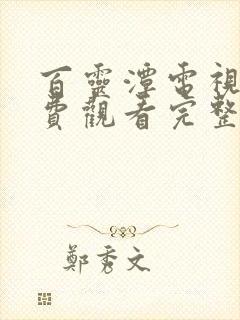 百靈潭電視
費觀看完整
鄭秀文